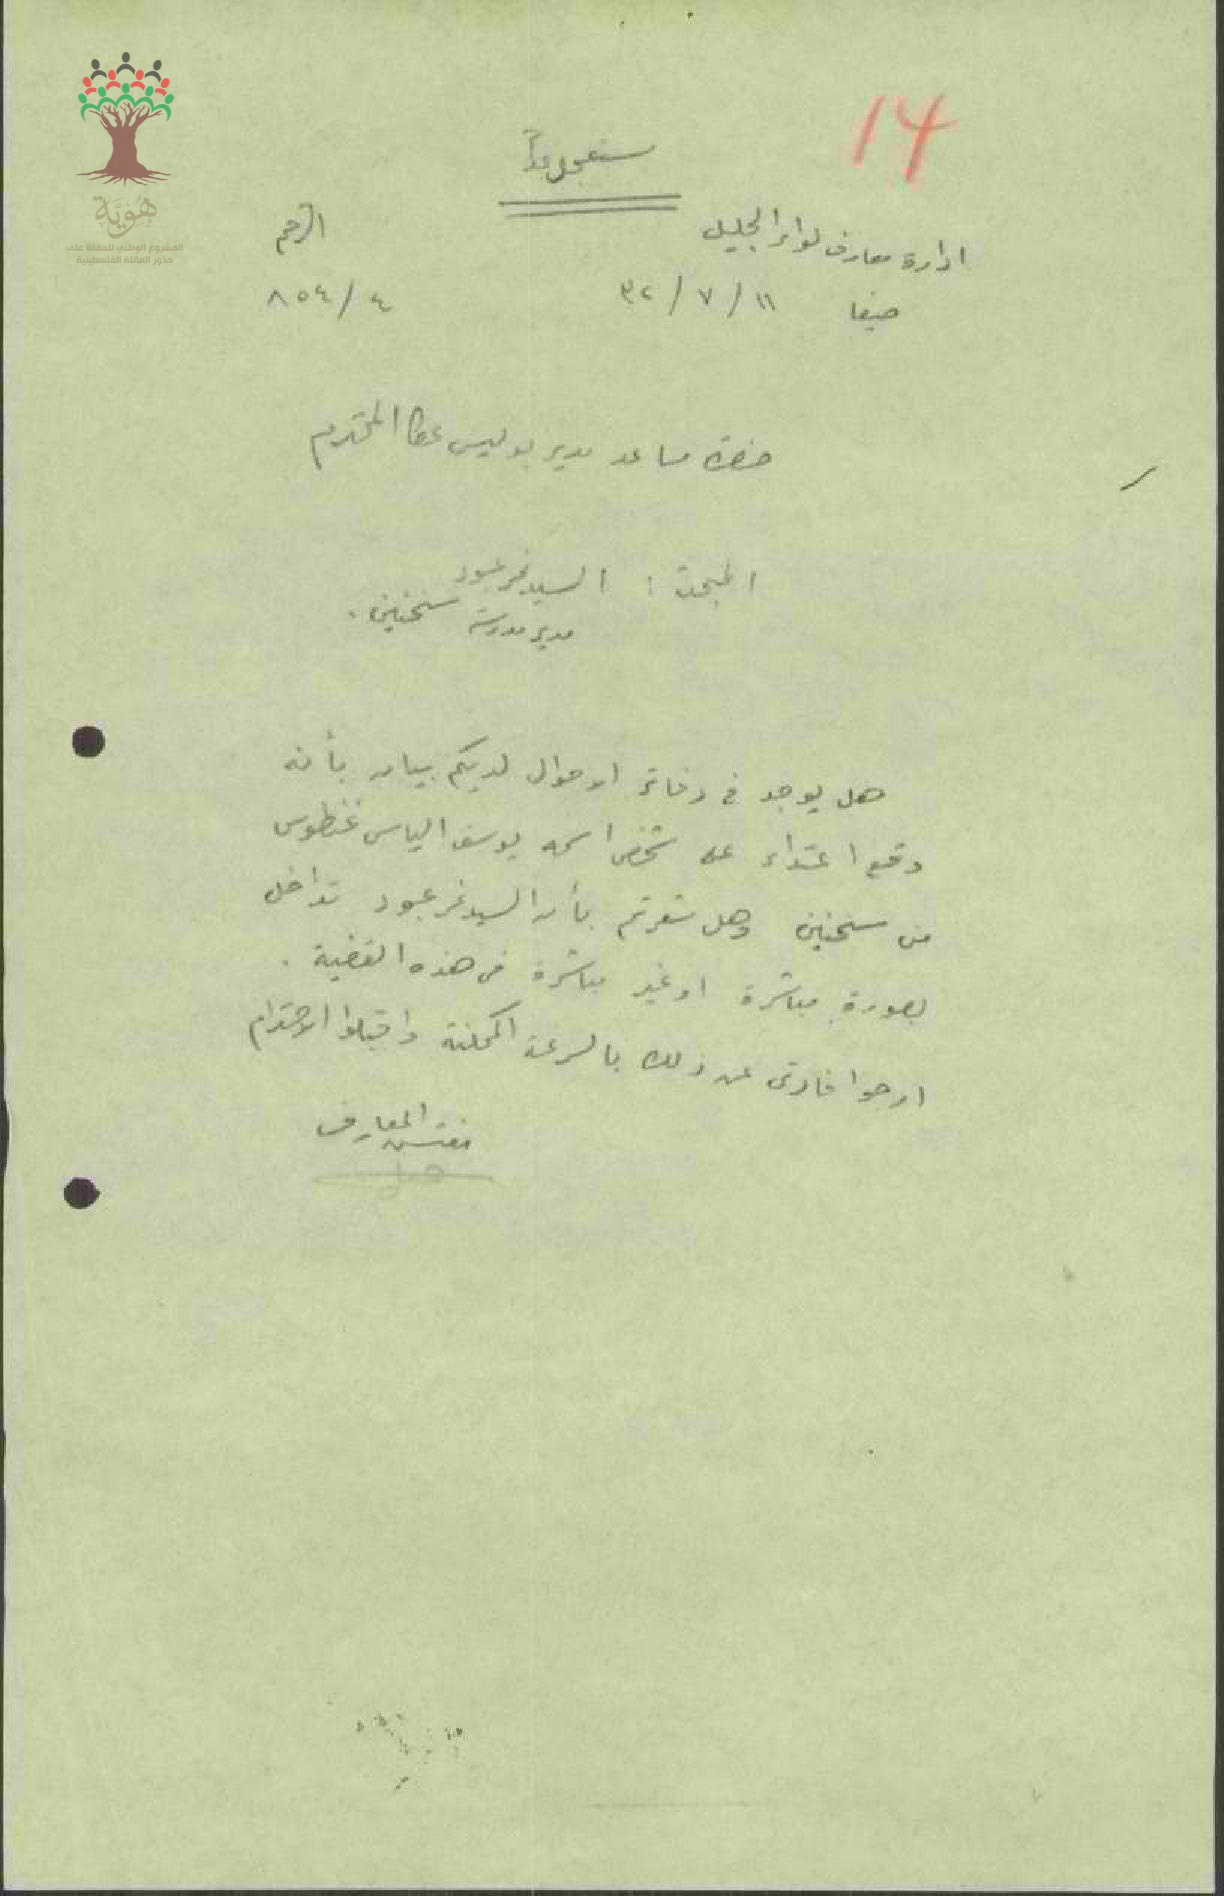 14
مستعجل جداً
ادارة معارف لواء الجليل
الرقم
حيفا ١١ / ٧ / ٣٢
٤ / ٨٥٤
حضرة مساعد مدير بوليس عكا المحترم
المبحث : السيد نمر عبود
مدير مدرسة سخنين .
هل يوجد في دفاتر الاحوال لديكم بيان بأنه
وقع اعتداء على شخص اسمه يوسف الياس غنطوس
من سخنين وهل شعرتم بأن السيد نمر عبود تداخل
بصورة مباشرة او غير مباشرة في هذه القضية .
ارجو افادتي عن ذلك بالسرعة الممكنة واقبلوا الاحترام
مفتش المعارف
هُوِيَّة
المشروع الوطني للحفاظ على
جذور العائلة الفلسطينية